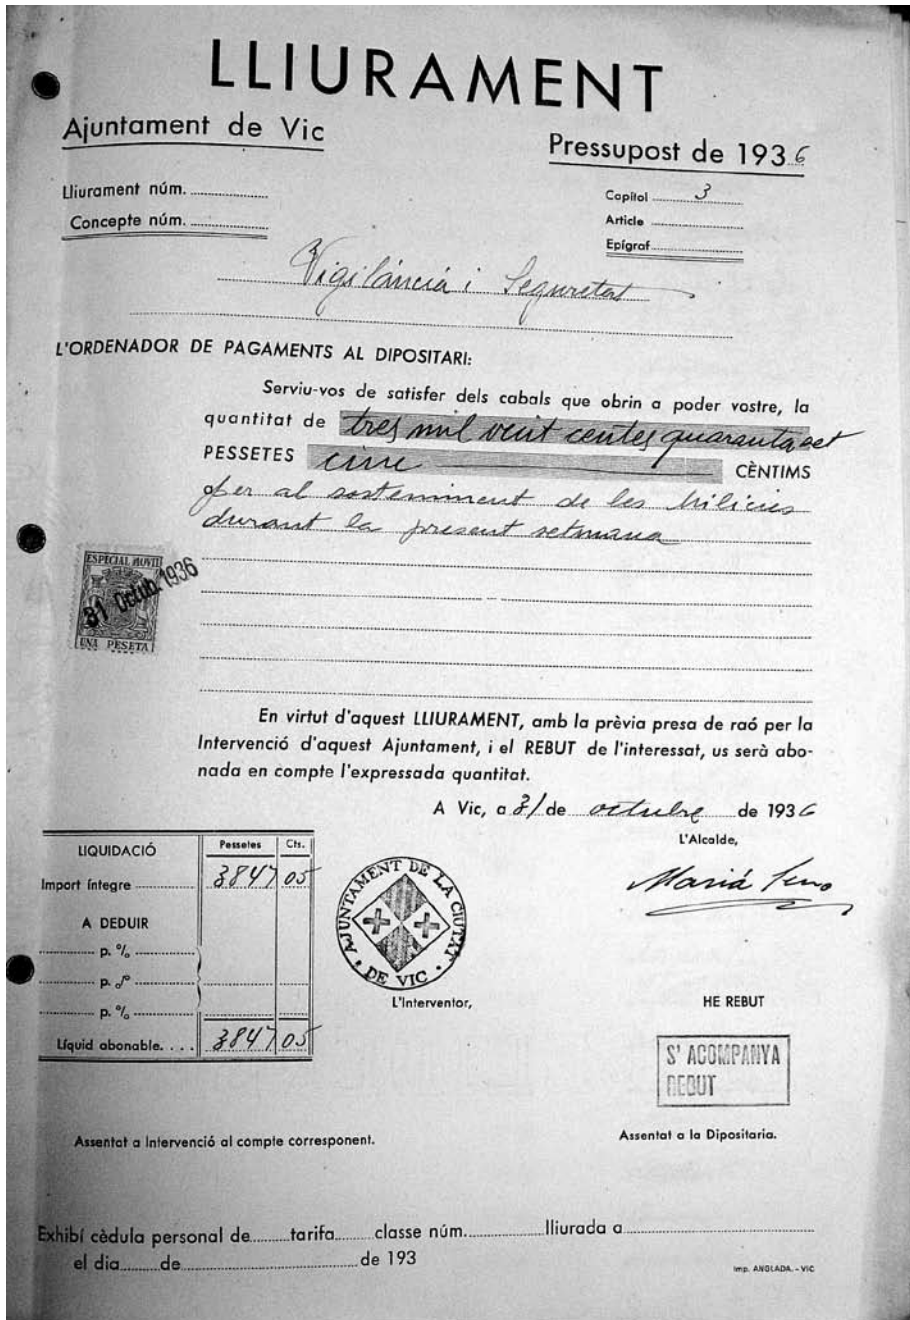 LLIURAMENT
Ajuntament de Vic
Pressupost de 1936
Lliurament núm.
Concepte núm.
Capítol 3
Article
Epígraf
Vigilància i Seguretat
L'ORDENADOR DE PAGAMENTS AL DIPOSITARI:
Serviu-vos de satisfer dels cabals que obrin a poder vostre, la
quantitat de tres mil vuit centes quaranta set
PESSETES cinc CÈNTIMS
per al sosteniment de les Milicies
durant la present setmana
ESPECIAL MOVIL
31 Octub. 1936
UNA PESETA
En virtut d'aquest LLIURAMENT, amb la prèvia presa de raó per la
Intervenció d'aquest Ajuntament, i el REBUT de l'interessat, us serà abo-
nada en compte l'expressada quantitat.
A Vic, a 31 de octubre de 1936
L'Alcalde,
Marià
LIQUIDACIÓ Pessetes Cts.
Import íntegre 3847 05
A DEDUIR
p. %
p. %
p. %
Líquid abonable. . . . 3847 05
AJUNTAMENT DE LA CIUTAT DE VIC
L'Interventor,
HE REBUT
S' ACOMPANYA
REBUT
Assentat a Intervenció al compte corresponent.
Assentat a la Dipositaria.
Exhibí cèdula personal de tarifa classe núm. lliurada a
el dia de de 193
Imp. ANGLADA. - VIC